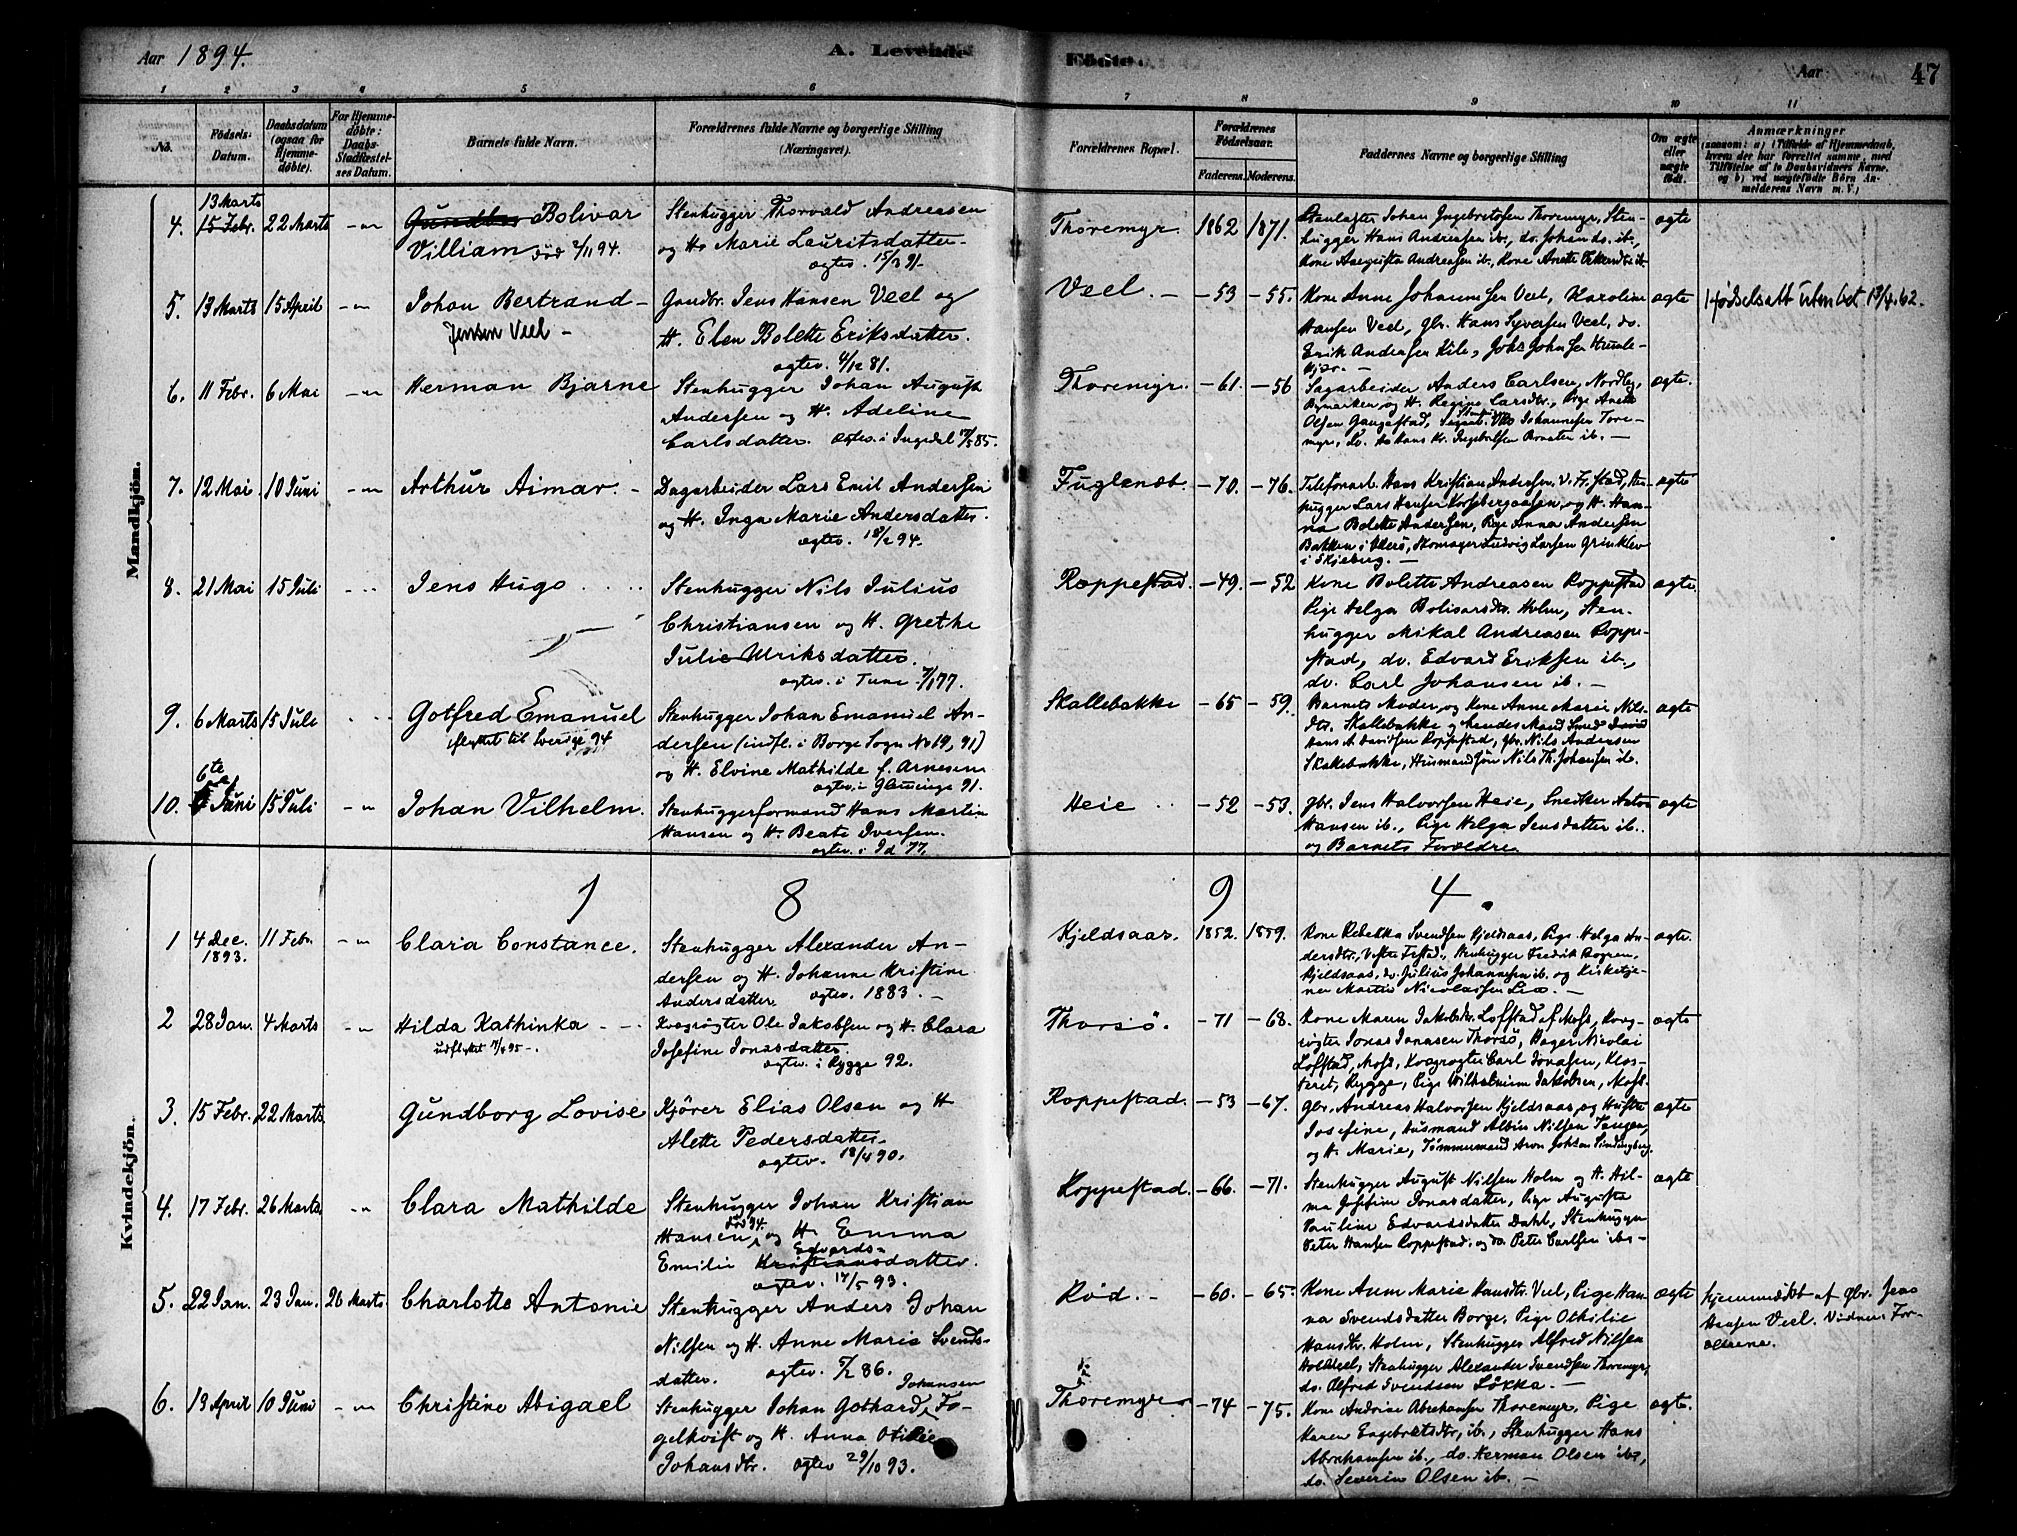 Aar 1894.
A. Levende
Födte.
Aar
47
1 2 3 4 5 6 7 8 9 10 11
No.
Födsels-Datum.
Daabsdatum (ogsaa for Hjemmedöbte).
For Hjemmedöbte: Daabs-Stadfæstelses Datum.
Barnets fulde Navn.
Forældrenes fulde Navne og borgerlige Stilling (Næringsvei).
Forældrenes Bopæl.
Forældrenes Födselsaar.
Faderens. Moderens.
Faddernes Navne og borgerlige Stilling
Om ægte eller uægte födt.
Anmærkninger
(saasom: a) i Tilfælde af Hjemmedaab, hvem der har forrettet samme, med Tilföielse af to Daabsvidners Navne, og b) ved uægtefödte Börn Anmelderens Navn m. V.)
Mandkjön.
13 Marts
4. 15 Febr. 22 Marts Gundbor Bolivar
Villiam död 2/11 94.
Stenhugger Thorvald Andreasen
og H. Marie Lauritsdatter
ægtev. 15/3 91.
Thoremyr. 1862 1871.
Stenhugger Johan Ingebretsen Thoremyr, Sten-
hugger Hans Andreasen ib., do. Johan do. ib.,
Kone Augusta Andreasen ib., Kone Anette
ægte
5. 13 Marts 15 April Johan Bertrand
Jensen Veel
Gaardbr. Jens Hansen Veel og
H. Elen Bolette Eriksdatter.
ægtev. 4/12 81.
Veel. 53 55.
Kone Anne Johannesen Veel, Karoline
Hansen Veel, gbr. Hans Syversen Veel, do.
Erik Andersen Kile, Johs Johnsen Humle-
kjær.
ægte
Fødselsatt utendet 13/4.62.
6. 11 Febr. 6 Mai Herman Bjarne
Stenhugger Johan August
Andersen og H. Adeline
Carlsdatter. ægtev. i Ingedal 17/5 85.
Thoremyr. 61. 56
Sagarbeider Anders Carlsen, Nordby,
Bymarken og H. Regine Larsdtr., Pige Anette
Olsen Gaugestad, Johannesen Tore-
myr,
ægte.
7. 12 Mai 10 Juni Arthur Aimar.
Dagarbeider Lars Emil Andersen
og H. Inga Marie Andersdatter.
ægtev. 18/2 94.
Fuglenæb. 70. 76.
Telefonarb. Hans Kristian Andersen V. Fr.stad, Sten-
hugger Lars Hansen Torsbergaasen, og H. Han-
na Bolette Andersen, Pige Anna Andersen
Bakken i Tune, Skomager Ludvig Larsen Grimkelev
i Skjeberg.
ægte
8. 21 Mai 15 Juli Jens Hugo
Stenhugger Nils Julius
Christiansen og H. Grethe
Julie Ulriksdatter.
ægtev. i Tune 7/1 77.
Roppestad. 49. 52
Kone Bolette Andreasen Roppestad
Pige Helga Bolisarsdtr. Holm, Sten-
hugger Mikal Andreasen Roppe-
stad, do. Edvard Eriksen ib.,
do. Carl Johansen ib.
ægte.
9. 6 Marts 15 Juli Gotfred Emanuel
flyttet til Sverige 94
Stenhugger Johan Emanuel An-
dersen (indfl. i Borge Sogn No 19, 91)
og H. Elvine Mathilde f. Arnesen
ægtev. i Glemminge 91.
Skallebakke 65 59.
Barnets Moder og Kone Anne Marie Nils-
dtr. Skallebakke, hendes Mand Smed
Hans A. Davidsen Roppestad, gbr. Nils Andreasen
Skallebakke, Husmandsøn Nils Th. Johansen ib.
ægte
6te
10. Juni 15 Juli Johan Vilhelm.
Stenhuggerformand Hans Martin
Hansen og H. Beate Iversen.
ægtev. i Id 77.
Heie 52 53.
Gbr. Jens Halvorsen Heie, Snedker Anton
Hansen ib., Pige Helga Jensdatter ib.
og Barnets Forældre
ægte
Kvindekjön.
1 8 9 4.
1 4 Dec. 1893. 11 Febr. Clara Constance.
Stenhugger Alexander An-
dersen og H. Johanne Kristine
Andersdatter. ægtev. 1883.
Kjeldsaas. 1852. 1859.
Kone Rebekka Svendsen Kjeldsaas, Pige Helga An-
dersdtr., Stenhugger Fredrik
Kjeldsaas, do. Julius Johannesen ib. og Kirketje-
ner Martin Nicolaisen Lie.
ægte.
2 28 Jan. 4 Marts Hilda Kathinka
udflyttet 11/4 95
Kvægrøgter Ole Jakobsen og H. Clara
Josefine Jonasdatter.
ægtev. i Rygge 92.
Thorsö. 71 68.
Kone Maren Jakobsdtr. Loftstad af Moss, Kvæg-
røgter Jonas Jonassen Thorsö, Bager Nicolai
Loftstad, Moss, Kvægrøgter Carl Jonassen, Klos-
teret, Rygge, Pige Wilhelmine Jakobsen, Moss.
ægte
3. 15 Febr. 22 Marts Gundborg Lovise
Kjörer Elias Olsen og H
Alette Pedersdatter
ægtev. 18/4 90.
Roppestad. 53 67.
Gbr. Andreas Halvorsen Kjeldsaas og Hustru
Josefine, Husmand Albin Nilsen Tangen,
og H. Marie, Tømmermand Aron Johsen
ægte
4. 17 Febr. 26 Marts Clara Mathilde
Stenhugger Johan Kristian
Hansen død 94. og H. Emma
Emilie Edvards- Kristiansdatter.
ægtev. 17/5 93.
Roppestad. 66. 71.
Stenhugger August Nilsen Holm og H. Hil-
ma Josefine Jonasdatter, Pige Augusta
Pauline Edvardsdatter Dahl, Stenhugger
Peter Hansen Roppestad, og do. Peter Carlsen ibs.
ægte
5. 22 Jan. 23 Jan. 26 Marts Charlotte Antonie
Stenhugger Anders Johan
Nilsen og H. Anne Marie Svends-
datter. ægtev. 5/2 86.
Rød. 60. 65.
Kone Anne Marie Hansdtr. Veel, Pige Han-
na Svendsdatter Borge, Pige Othilie
Hansdtr. Holm, Stenhugger Alfred Nilsen
Stenhugger Alexander Svendsen Thoremyr,
do. Alfred Svendsen Løkka.
ægte
Hjemmedøbt af gbr. Jens
Hansen Veel. Vidner: For-
ældrene.
6. 19 April 10 Juni Christine Abigael
Stenhugger Johan Gothard Johansen Fo-
gelkvist og H. Anna Otilie
Johansdtr. ægtev 29/10 93.
Thoremyr 74 75.
Kone Andrine Abrahamsen Thoremyr, Pige
Karen Engebretsdtr. ib., Stenhugger Hans
Abrahamsen ib., do. Herman Olsen ibs,
do. Severin Olsen ib.
ægte.